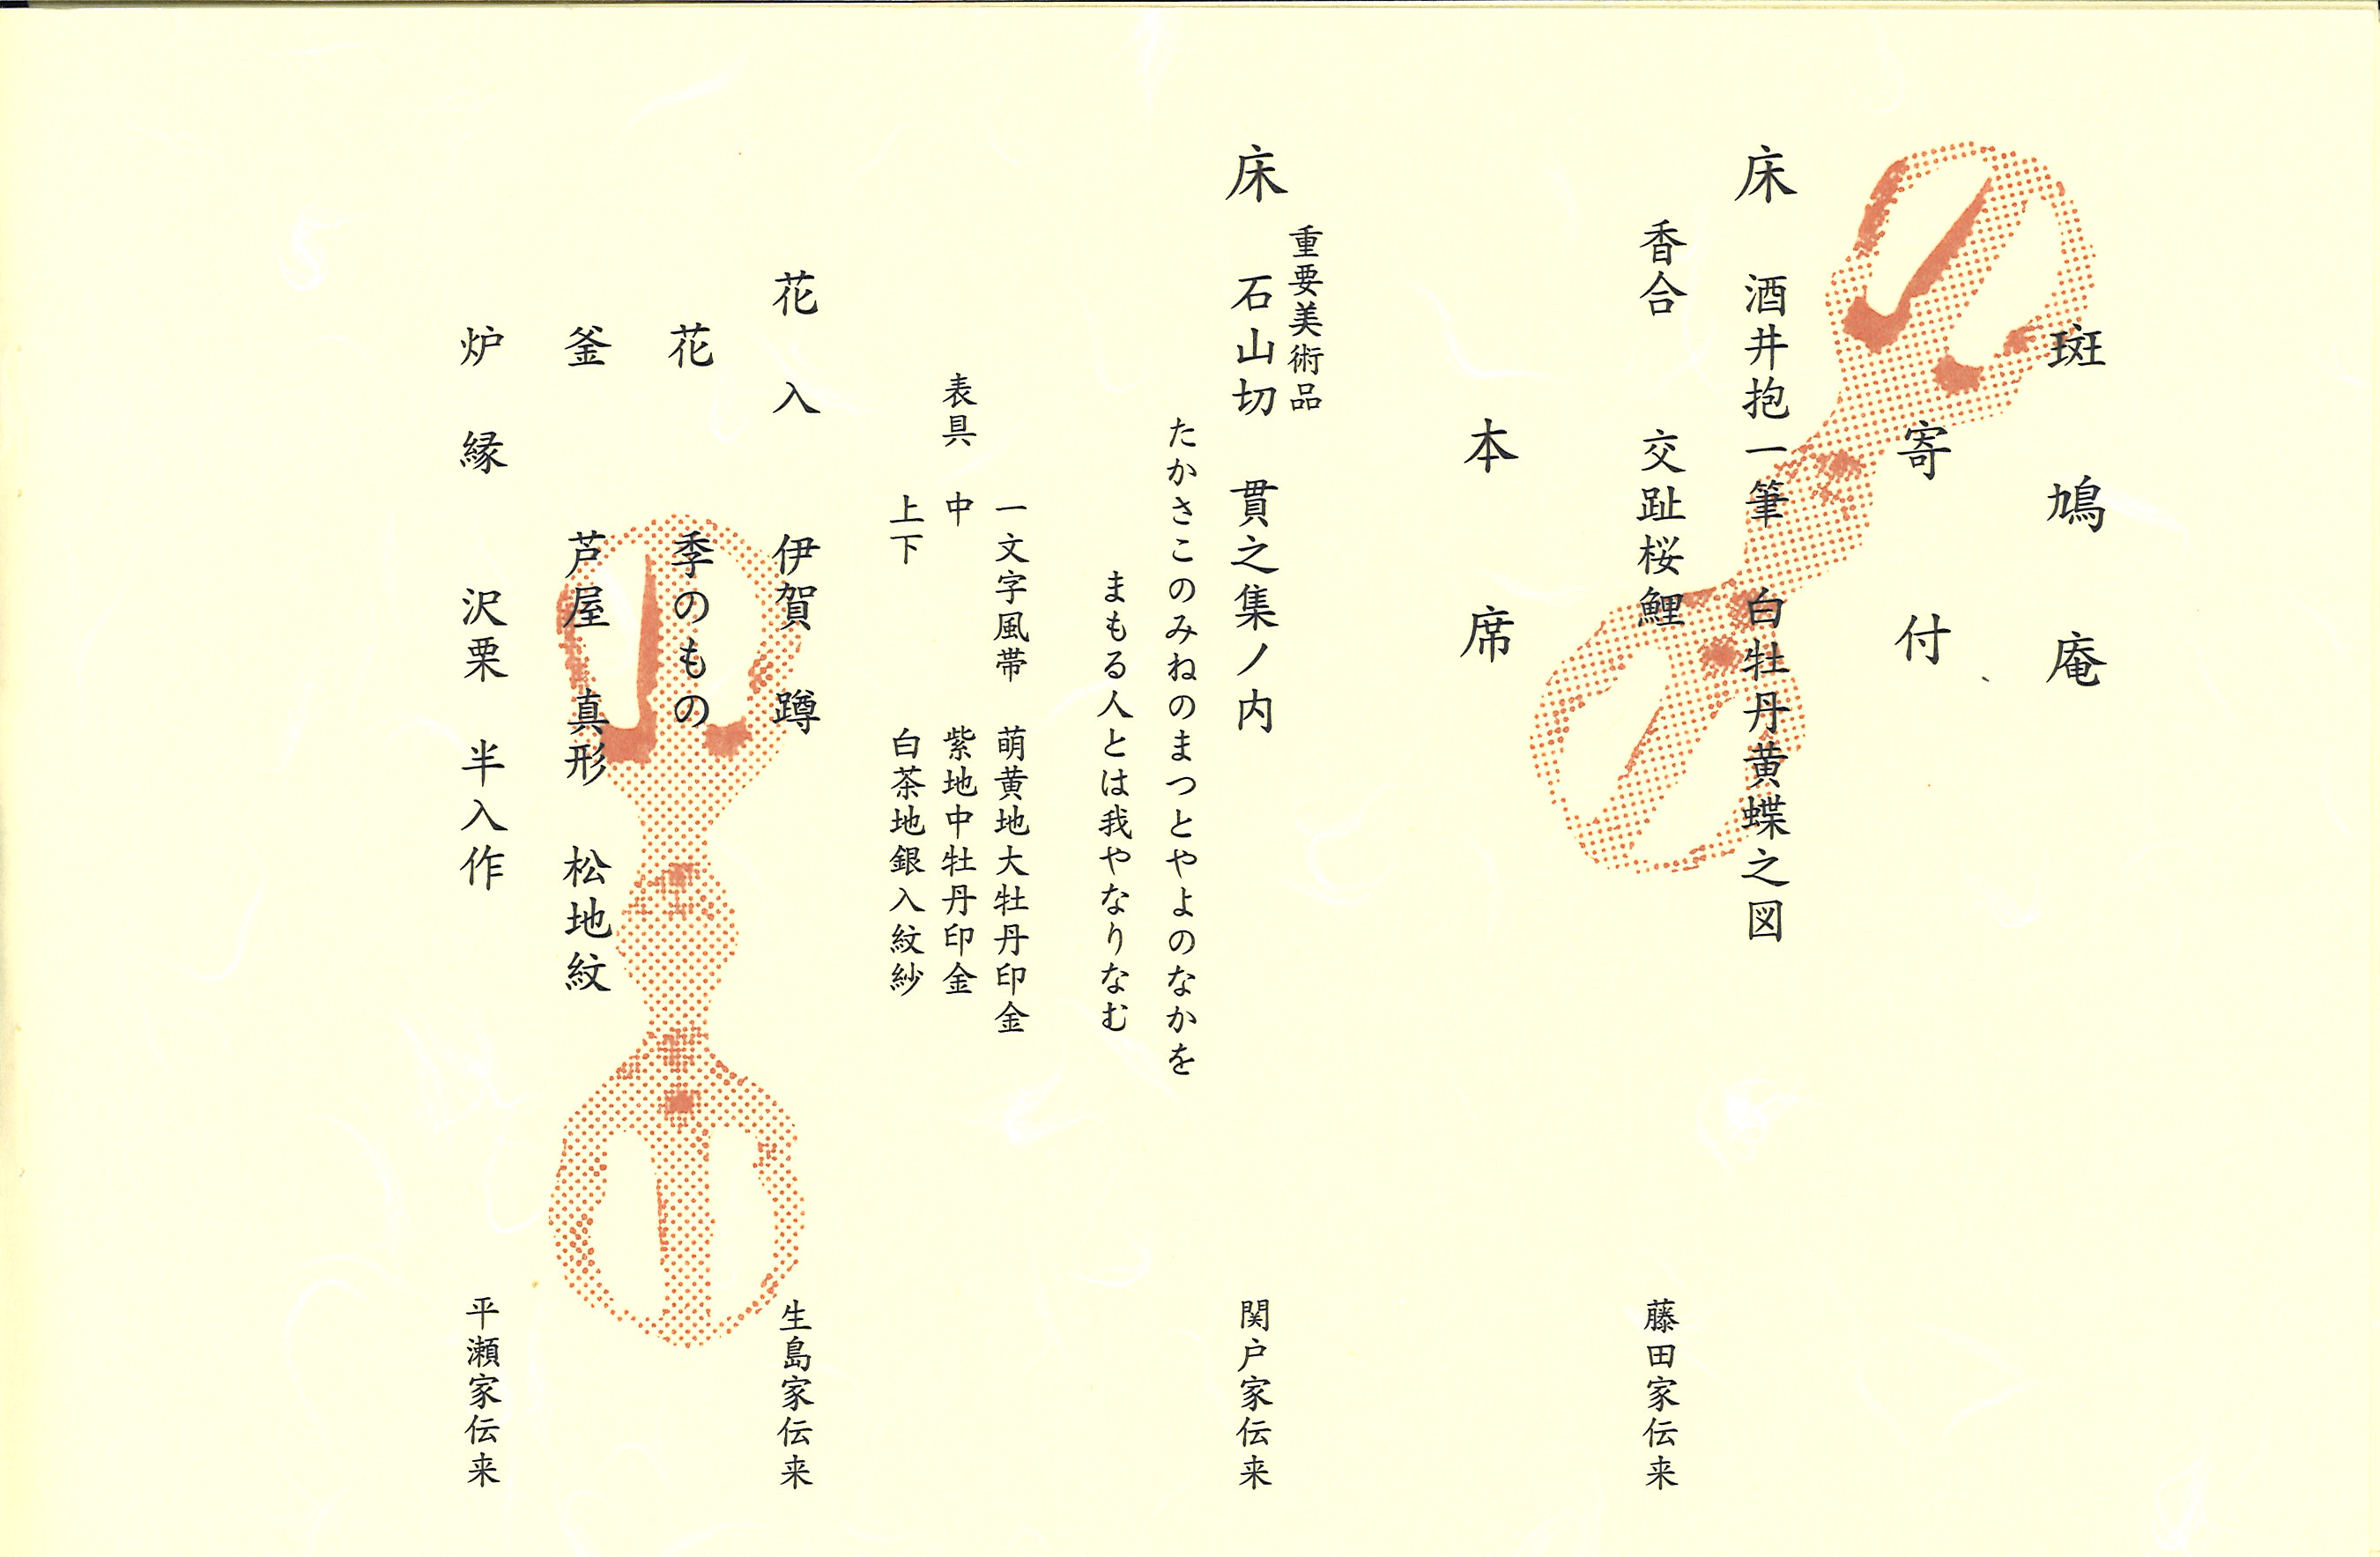 斑鳩庵
寄付
床　酒井抱一筆　白牡丹黄蝶之図
香合　交趾桜鯉　藤田家伝来
本席
重要美術品
床　石山切　貫之集ノ内　関戸家伝来
たかさこのみねのまつとやよのなかを
まもる人とは我やなりなむ
一文字風帯　萌黄地大牡丹印金
表具　中　紫地中牡丹印金
上下　白茶地銀入紋紗
花入　伊賀　蹲　生島家伝来
花　季のもの
釜　芦屋　真形　松地紋
炉縁　沢栗　半入作　平瀬家伝来